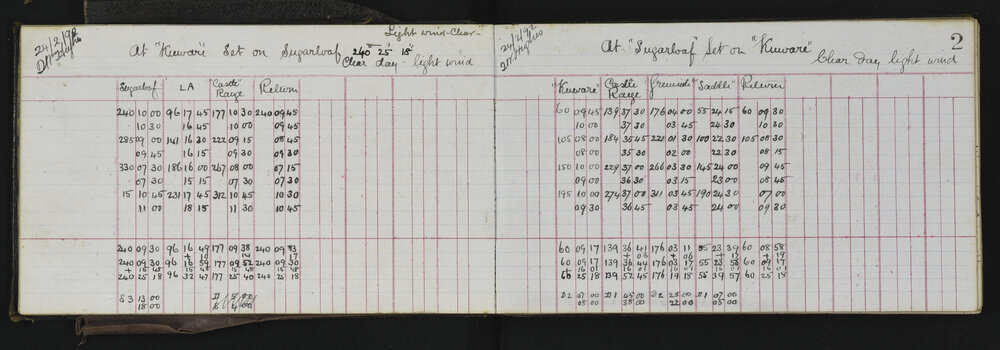 24/2/92
Light wind - Clear -
At "Kuwari" Set on Sugarloaf 240° 25' 15"
Clear day - light wind
Sugarloaf LA "Castle" Range Return
240 10 00 96 17 45 177 10 30 240 09 45
10 30 16 45 10 00 09 45
285 09 00 141 16 30 222 09 15 08 45
09 45 16 15 09 30 09 30
330 07 30 186 16 00 267 08 00 07 15
07 30 15 15 07 30 07 30
15 10 45 231 17 45 312 10 45 10 30
11 00 18 15 11 30 10 45
240 09 30 96 16 49 177 09 38 240 09 13
+ 10 14 17
240 09 30 96 16 59 177 09 52 240 09 30
+ 15 48 15 48 15 48 15 48
240 25 18 96 32 47 177 25 40 240 25 18
83 13 00
18 00 4 00
24/2/92
2
At "Sugarloaf" Set on "Kuwari"
Clear day light wind
"Kuwari" Castle Range "Saddle" Return
60 09 45 139 37 30 176 04 00 55 24 15 60 09 30
10 00 37 30 03 45 24 30 10 30
105 08 00 184 35 45 221 01 30 100 22 30 105 08 30
08 00 35 30 02 00 22 30 08 15
150 10 00 229 37 00 266 03 30 145 24 00 09 45
09 00 36 30 03 15 23 00 08 45
195 10 00 274 37 00 311 03 45 190 24 30 07 00
09 30 36 45 03 45 24 00 09 30
60 09 17 139 36 41 176 03 11 55 23 39 60 08 58
+ 03 + 06 + 19
60 09 17 139 36 44 176 03 17 55 23 56 60 09 17
+ 16 01 16 01 16 01 16 01 16 01
60 25 18 139 52 45 176 19 18 55 39 57 60 25 18
D2 07 00 D1 45 00 D2 28 00 D1 07 00
08 00 38 00 22 00 05 00